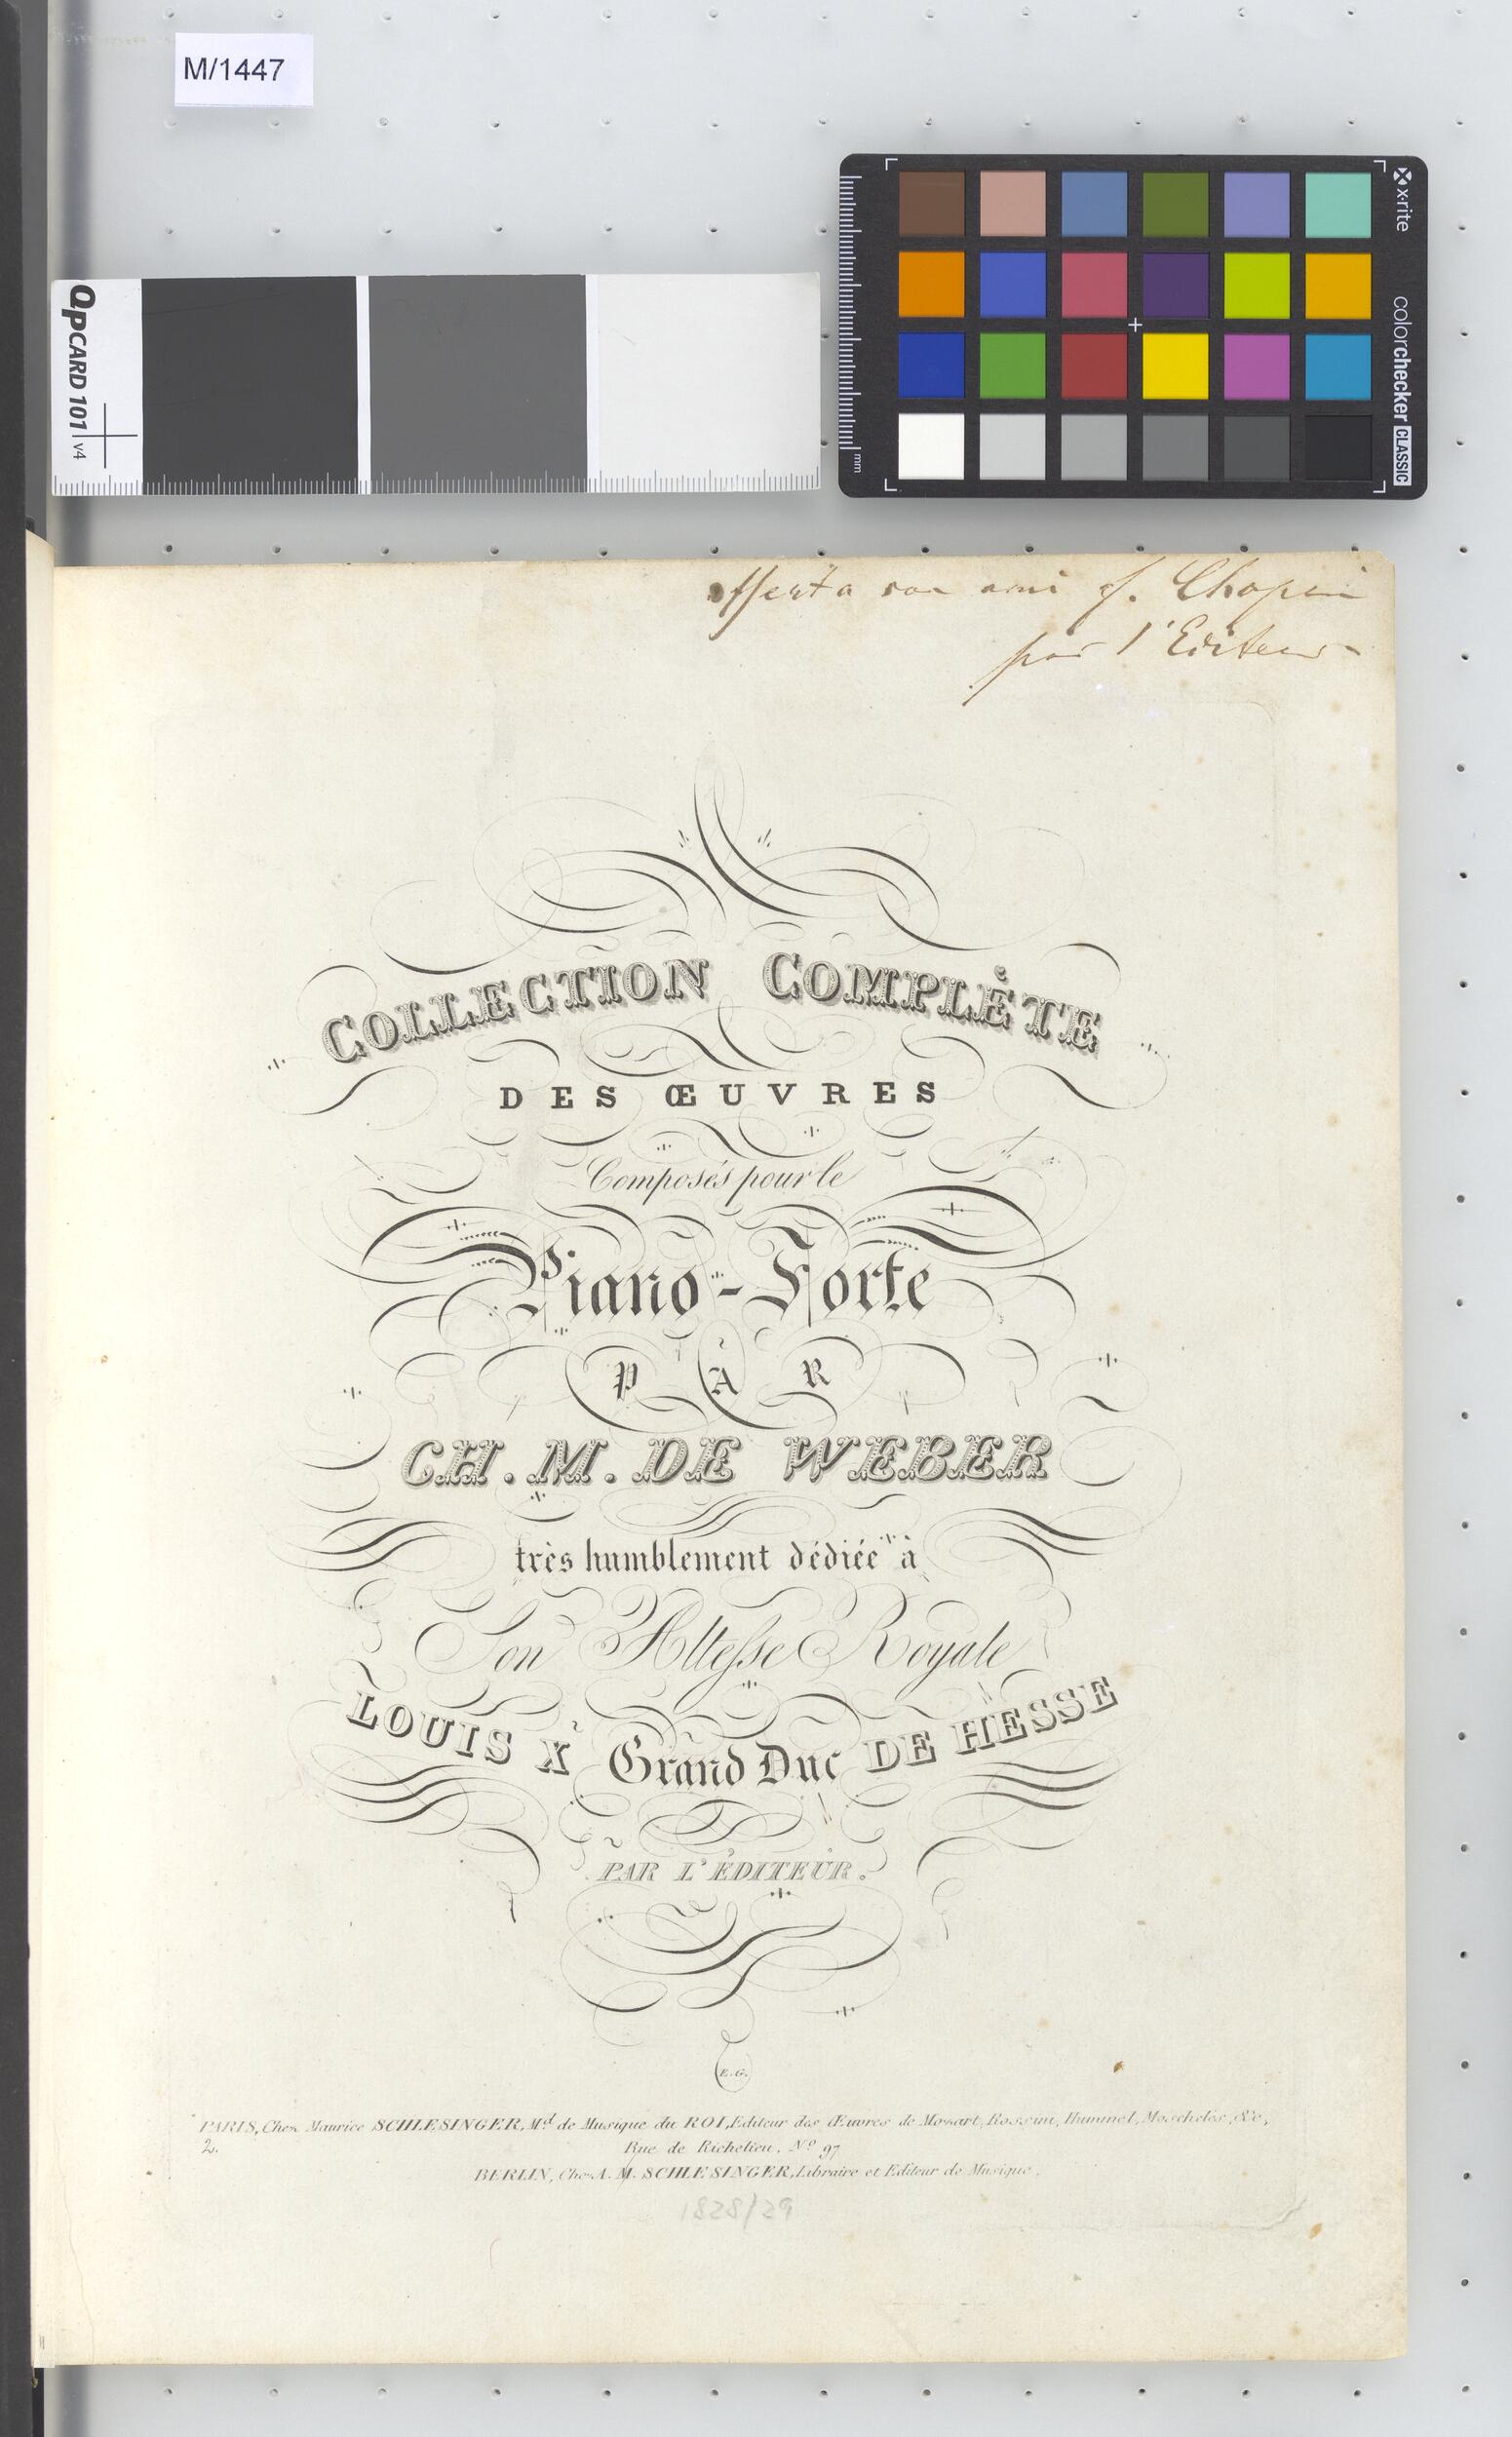 M/1447
x·rite
colorchecker CLASSIC
mm
QPCARD 101 v4
offert a son ami f. Chopin
par l'Editeur
COLLECTION COMPLÈTE
DES ŒUVRES
Composés pour le
Piano-Forte
PAR
CH. M. DE WEBER
très humblement dédiée à
Son Altesse Royale
LOUIS X Grand Duc DE HESSE
PAR L'ÉDITEUR.
E.G.
PARIS, Chez Maurice SCHLESINGER, Md de Musique du ROI, Editeur des Œuvres de Mozart, Rossini, Hummel, Moscheles, &c,
2.
Rue de Richelieu, No 97
BERLIN, Chez A. M. SCHLESINGER, Libraire et Editeur de Musique.
1828/29